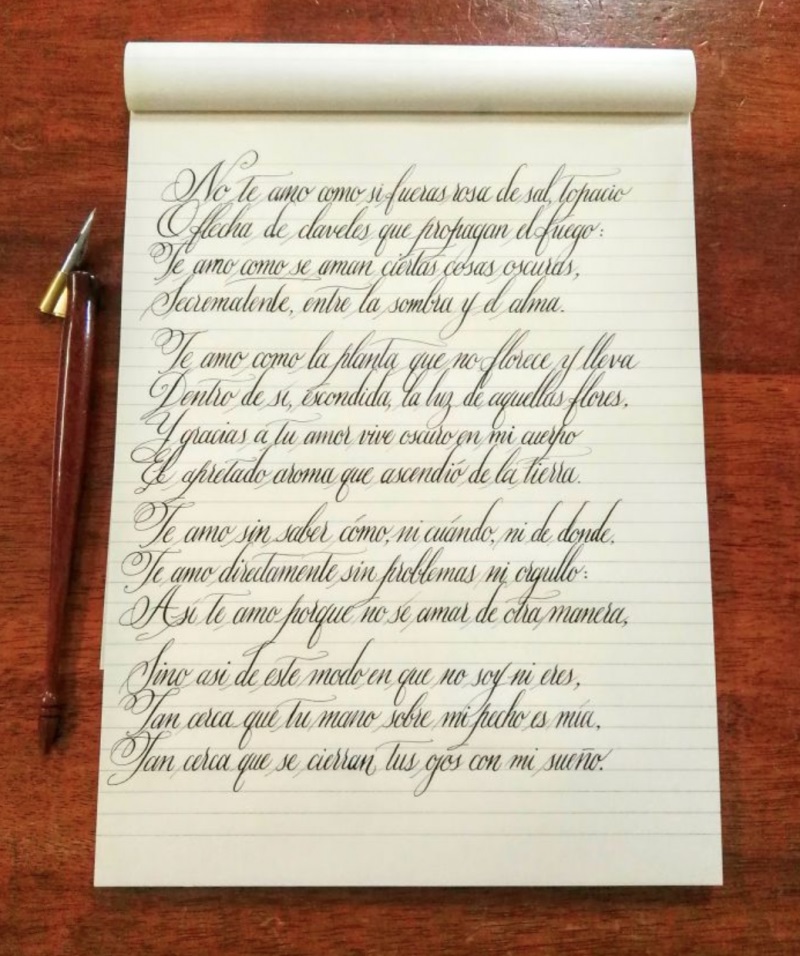 No te amo como si fueras rosa de sal, topacio
O flecha de claveles que propagan el fuego:
Te amo como se aman ciertas cosas oscuras,
Secrematente, entre la sombra y el alma.
Te amo como la planta que no florece y lleva
Dentro de si, escondida, la luz de aquellas flores,
Y gracias a tu amor vive oscuro en mi cuerpo
El apretado aroma que ascendió de la tierra.
Te amo sin saber cómo, ni cuándo, ni de donde,
Te amo directamente sin problemas ni orgullo:
Asi te amo porque no se amar de otra manera,
Sino asi de este modo en que no soy ni eres,
Tan cerca que tu mano sobre mi pecho es mía,
Tan cerca que se cierran tus ojos con mi sueño.